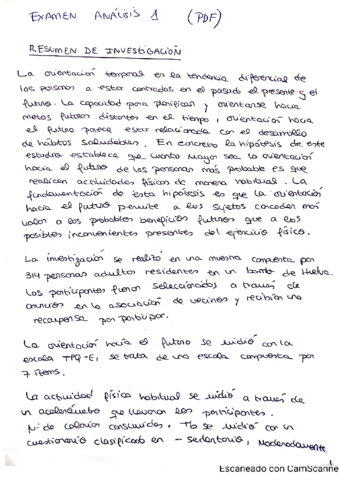 EXAMEN ANÁLISIS 1 (PDF)
RESUMEN DE INVESTIGACIÓN
La orientación temporal es la tendencia diferencial de
las personas a estar centradas en el pasado el presente y el
futuro. La capacidad para planificar y orientarse hacia
metas futuras distantes en el tiempo, orientación hacia
el futuro parece estar relacionada con el desarrollo
de hábitos saludables. En concreto la hipótesis de este
estudio establece que cuanto mayor sea la orientación
hacia el futuro de las personas más probable es que
realicen actividades físicas de manera habitual. La
fundamentación de esta hipótesis es que la orientación
hacia el futuro permite a los sujetos conceder más
valor a los probables beneficios futuros que a los
posibles inconvenientes presentes del ejercicio físico.
La investigación se realizó en una muestra compuesta por
314 personas adultas residentes en un barrio de Huelva.
Los participantes fueron seleccionados a través de
anuncios en la asociación de vecinos y recibían una
recompensa por participar.
La orientación hacia el futuro se midió con la
escala TPQ-E, se trata de una escala compuesta por
7 ítems.
La actividad física habitual se midió a través de
un acelerómetro que llevaron los participantes.
Nº de calorías consumidas. Tb se midió con un
cuestionario clasificado en - sedentario, moderadamente
1
Escaneado con CamScanne